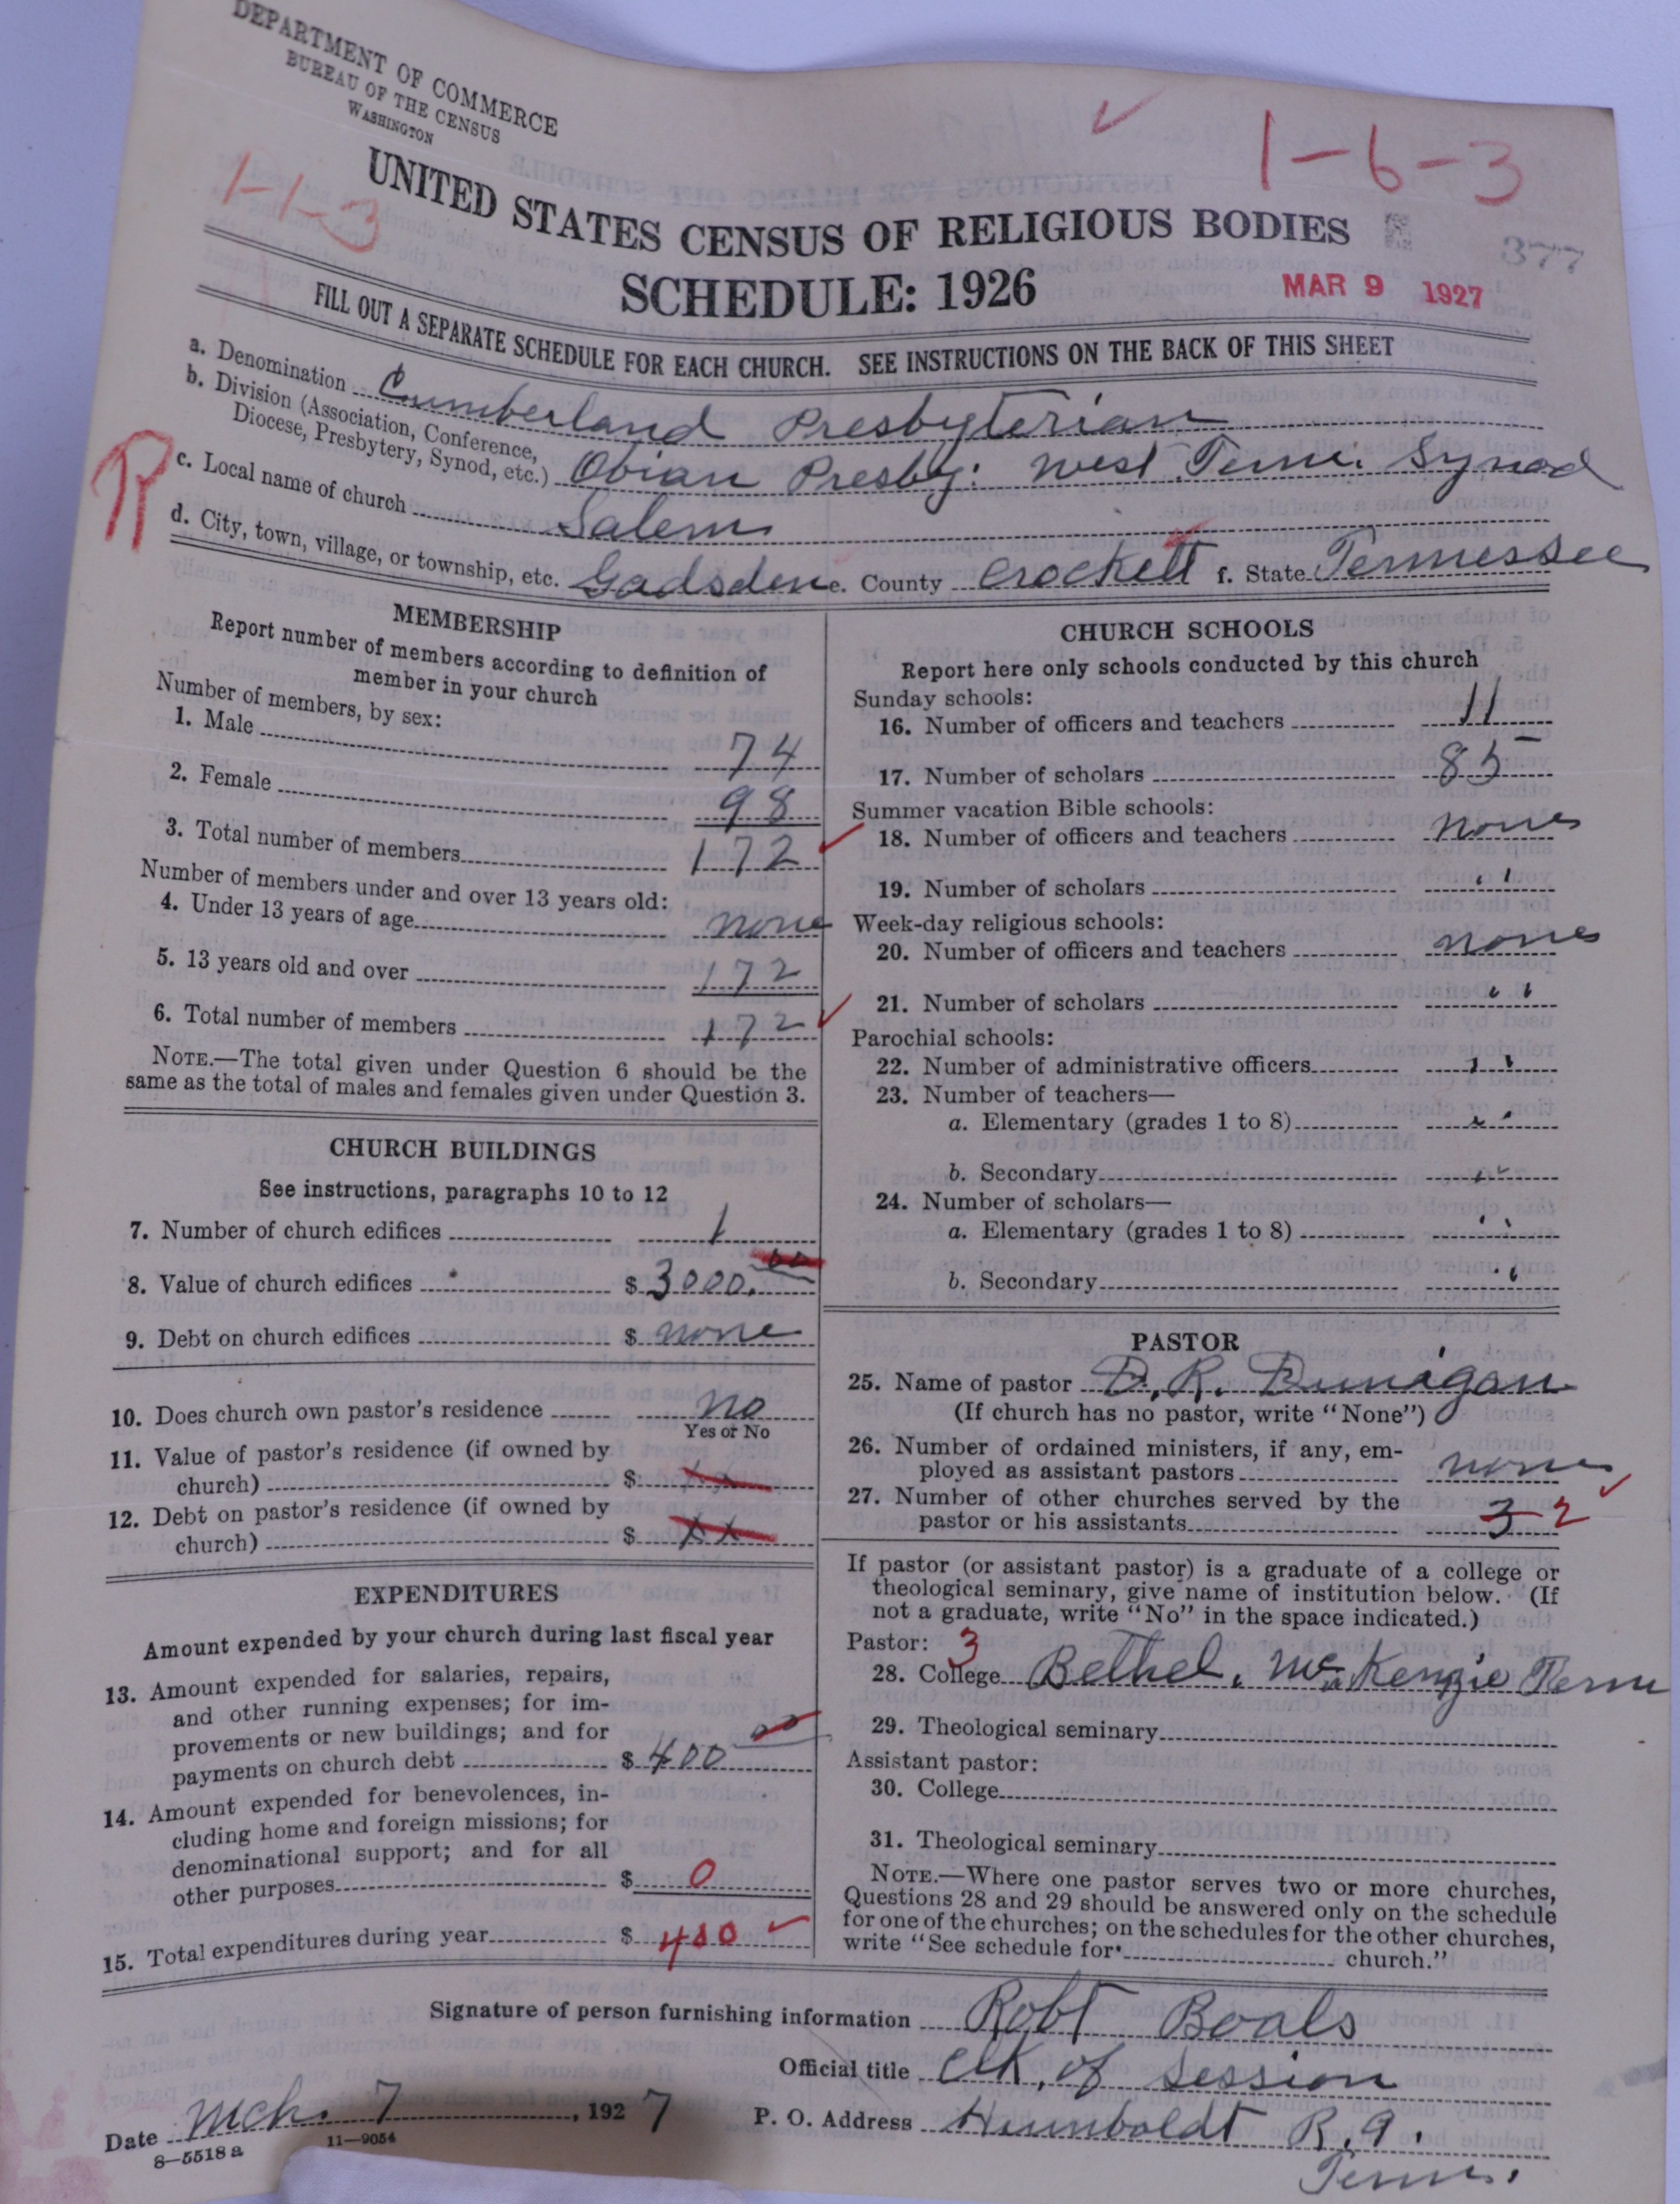 DEPARTMENT OF COMMERCE
BUREAU OF THE CENSUS
WASHINGTON
1-6-3
1-1-3
UNITED STATES CENSUS OF RELIGIOUS BODIES
377
SCHEDULE: 1926
MAR 9 1927
FILL OUT A SEPARATE SCHEDULE FOR EACH CHURCH. SEE INSTRUCTIONS ON THE BACK OF THIS SHEET
a. Denomination Cumberland Presbyterian
b. Division (Association, Conference,
Diocese, Presbytery, Synod, etc.) Obian Presby: West Tenn. Synod
c. Local name of church Salem
d. City, town, village, or township, etc. Gadsden e. County Crockett f. State Tennessee
MEMBERSHIP
Report number of members according to definition of
member in your church
Number of members, by sex:
1. Male 74
2. Female 98
3. Total number of members 172
Number of members under and over 13 years old:
4. Under 13 years of age none
5. 13 years old and over 172
6. Total number of members 172
NOTE.—The total given under Question 6 should be the
same as the total of males and females given under Question 3.
CHURCH BUILDINGS
See instructions, paragraphs 10 to 12
7. Number of church edifices 1
8. Value of church edifices $ 3000.00
9. Debt on church edifices $ none
10. Does church own pastor's residence no
Yes or No
11. Value of pastor's residence (if owned by
church) $ xx
12. Debt on pastor's residence (if owned by
church) $ xx
EXPENDITURES
Amount expended by your church during last fiscal year
13. Amount expended for salaries, repairs,
and other running expenses; for im-
provements or new buildings; and for
payments on church debt $ 400 00
14. Amount expended for benevolences, in-
cluding home and foreign missions; for
denominational support; and for all
other purposes $ 0
15. Total expenditures during year $ 400
CHURCH SCHOOLS
Report here only schools conducted by this church
Sunday schools:
16. Number of officers and teachers 11
17. Number of scholars 85
Summer vacation Bible schools:
18. Number of officers and teachers none
19. Number of scholars "
Week-day religious schools:
20. Number of officers and teachers none
21. Number of scholars "
Parochial schools:
22. Number of administrative officers "
23. Number of teachers—
a. Elementary (grades 1 to 8) "
b. Secondary "
24. Number of scholars—
a. Elementary (grades 1 to 8) "
b. Secondary "
PASTOR
25. Name of pastor D. R. Dunigan
(If church has no pastor, write "None")
26. Number of ordained ministers, if any, em-
ployed as assistant pastors none
27. Number of other churches served by the
pastor or his assistants 3 2
If pastor (or assistant pastor) is a graduate of a college or
theological seminary, give name of institution below. (If
not a graduate, write "No" in the space indicated.)
Pastor: 3
28. College Bethel, McKenzie Tenn
29. Theological seminary
Assistant pastor:
30. College
31. Theological seminary
NOTE.—Where one pastor serves two or more churches,
Questions 28 and 29 should be answered only on the schedule
for one of the churches; on the schedules for the other churches,
write "See schedule for church."
Signature of person furnishing information Robt Boals
Official title Clk. of Session
Date Mch. 7, 1927 P. O. Address Humboldt R. 9.
Tenn.
8—5518 a 11—9054